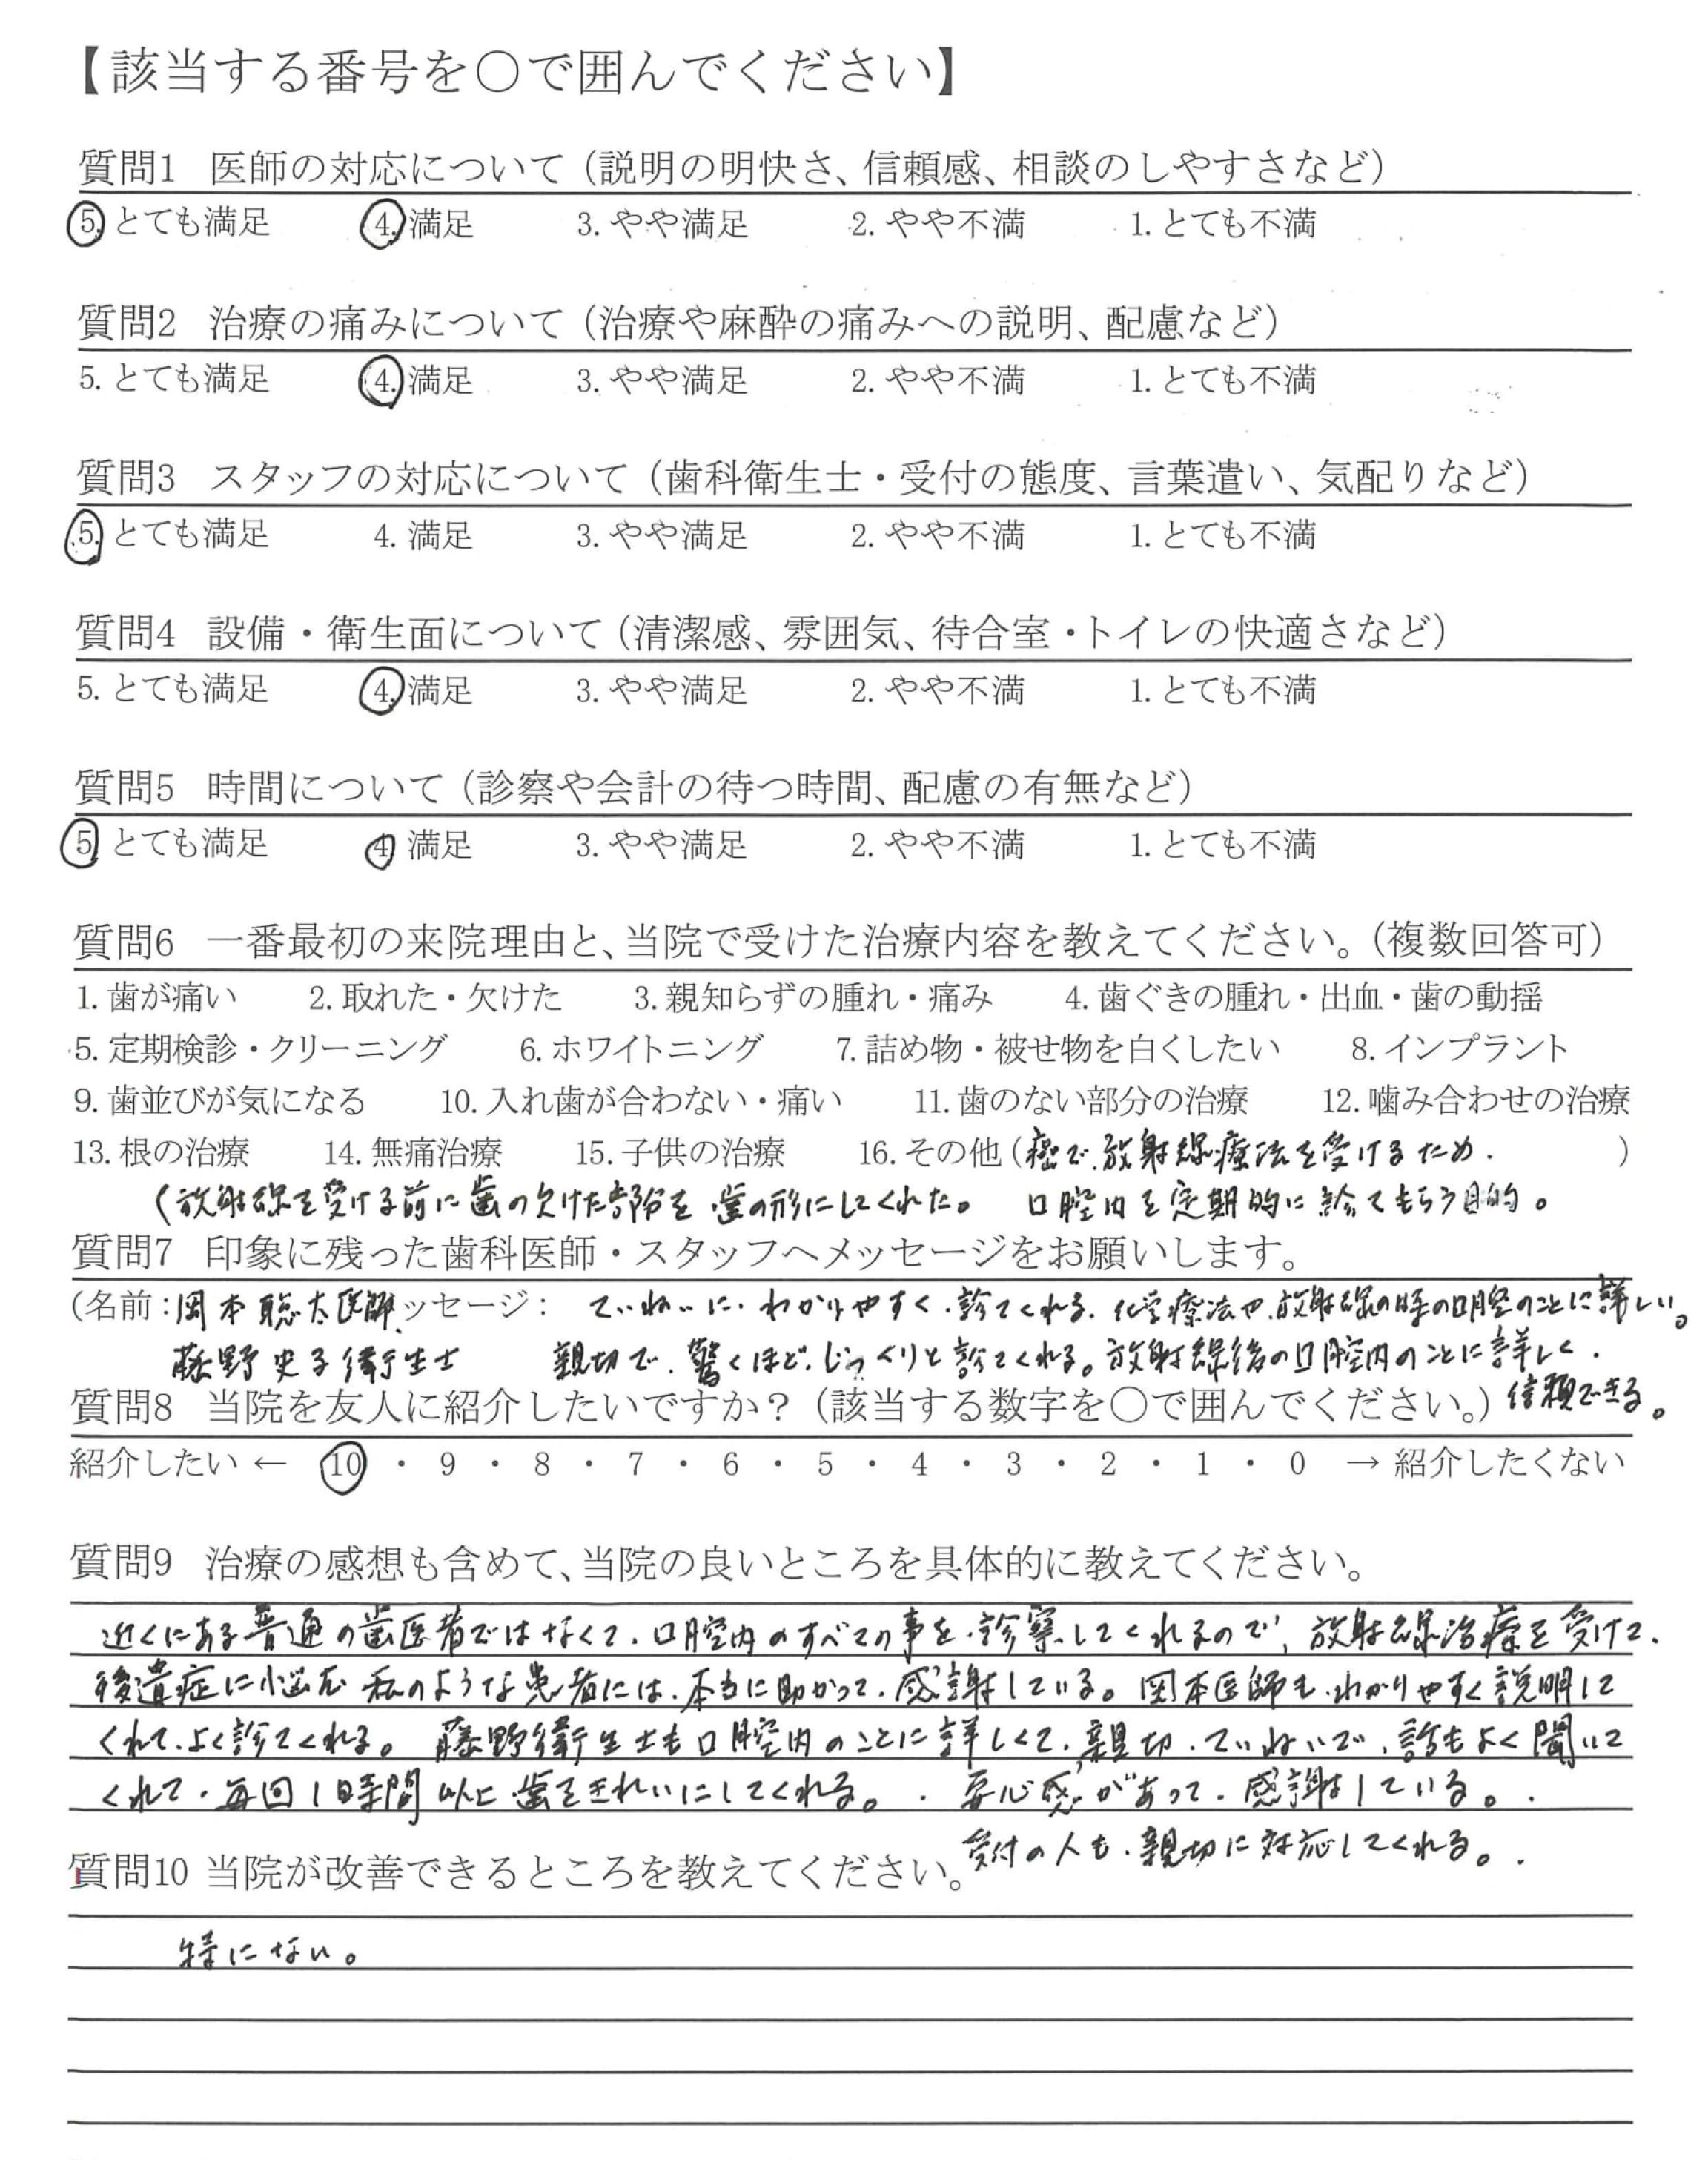 【該当する番号を○で囲んでください】
質問1 医師の対応について（説明の明快さ、信頼感、相談のしやすさなど）
5. とても満足 4. 満足 3. やや満足 2. やや不満 1. とても不満
質問2 治療の痛みについて（治療や麻酔の痛みへの説明、配慮など）
5. とても満足 4. 満足 3. やや満足 2. やや不満 1. とても不満
質問3 スタッフの対応について（歯科衛生士・受付の態度、言葉遣い、気配りなど）
5. とても満足 4. 満足 3. やや満足 2. やや不満 1. とても不満
質問4 設備・衛生面について（清潔感、雰囲気、待合室・トイレの快適さなど）
5. とても満足 4. 満足 3. やや満足 2. やや不満 1. とても不満
質問5 時間について（診察や会計の待つ時間、配慮の有無など）
5. とても満足 4. 満足 3. やや満足 2. やや不満 1. とても不満
質問6 一番最初の来院理由と、当院で受けた治療内容を教えてください。（複数回答可）
1. 歯が痛い 2. 取れた・欠けた 3. 親知らずの腫れ・痛み 4. 歯ぐきの腫れ・出血・歯の動揺
5. 定期検診・クリーニング 6. ホワイトニング 7. 詰め物・被せ物を白くしたい 8. インプラント
9. 歯並びが気になる 10. 入れ歯が合わない・痛い 11. 歯のない部分の治療 12. 噛み合わせの治療
13. 根の治療 14. 無痛治療 15. 子供の治療 16. その他（癌で、放射線療法を受けるため．）
（放射線を受ける前に歯の欠けた部分を、歯の形にしてくれた。 口腔内を定期的に診てもらう目的。
質問7 印象に残った歯科医師・スタッフへメッセージをお願いします。
（名前：岡本聡太医師 ッセージ： ていねいに、わかりやすく、診てくれる．化学療法や、放射線の時の口腔のことに詳しい。
藤野史子衛生士 親切で、驚くほど、じっくりと診てくれる。放射線後の口腔内のことに詳しく．
信頼できる。
質問8 当院を友人に紹介したいですか？（該当する数字を○で囲んでください。）
紹介したい ← 10 ・ 9 ・ 8 ・ 7 ・ 6 ・ 5 ・ 4 ・ 3 ・ 2 ・ 1 ・ 0 → 紹介したくない
質問9 治療の感想も含めて、当院の良いところを具体的に教えてください。
近くにある普通の歯医者ではなくて、口腔内のすべての事を、診察してくれるので、放射線治療を受けて．
後遺症に悩む 私のような患者には、本当に助かって、感謝している。岡本医師も、わかりやすく説明して
くれて、よく診てくれる。 藤野衛生士も口腔内のことに詳しくて、親切、ていねいで、話もよく聞いて
くれて、毎回1時間以上歯をきれいにしてくれる。．安心感があって、感謝している。．
受付の人も、親切に対応してくれる。．
質問10 当院が改善できるところを教えてください。
特にない。